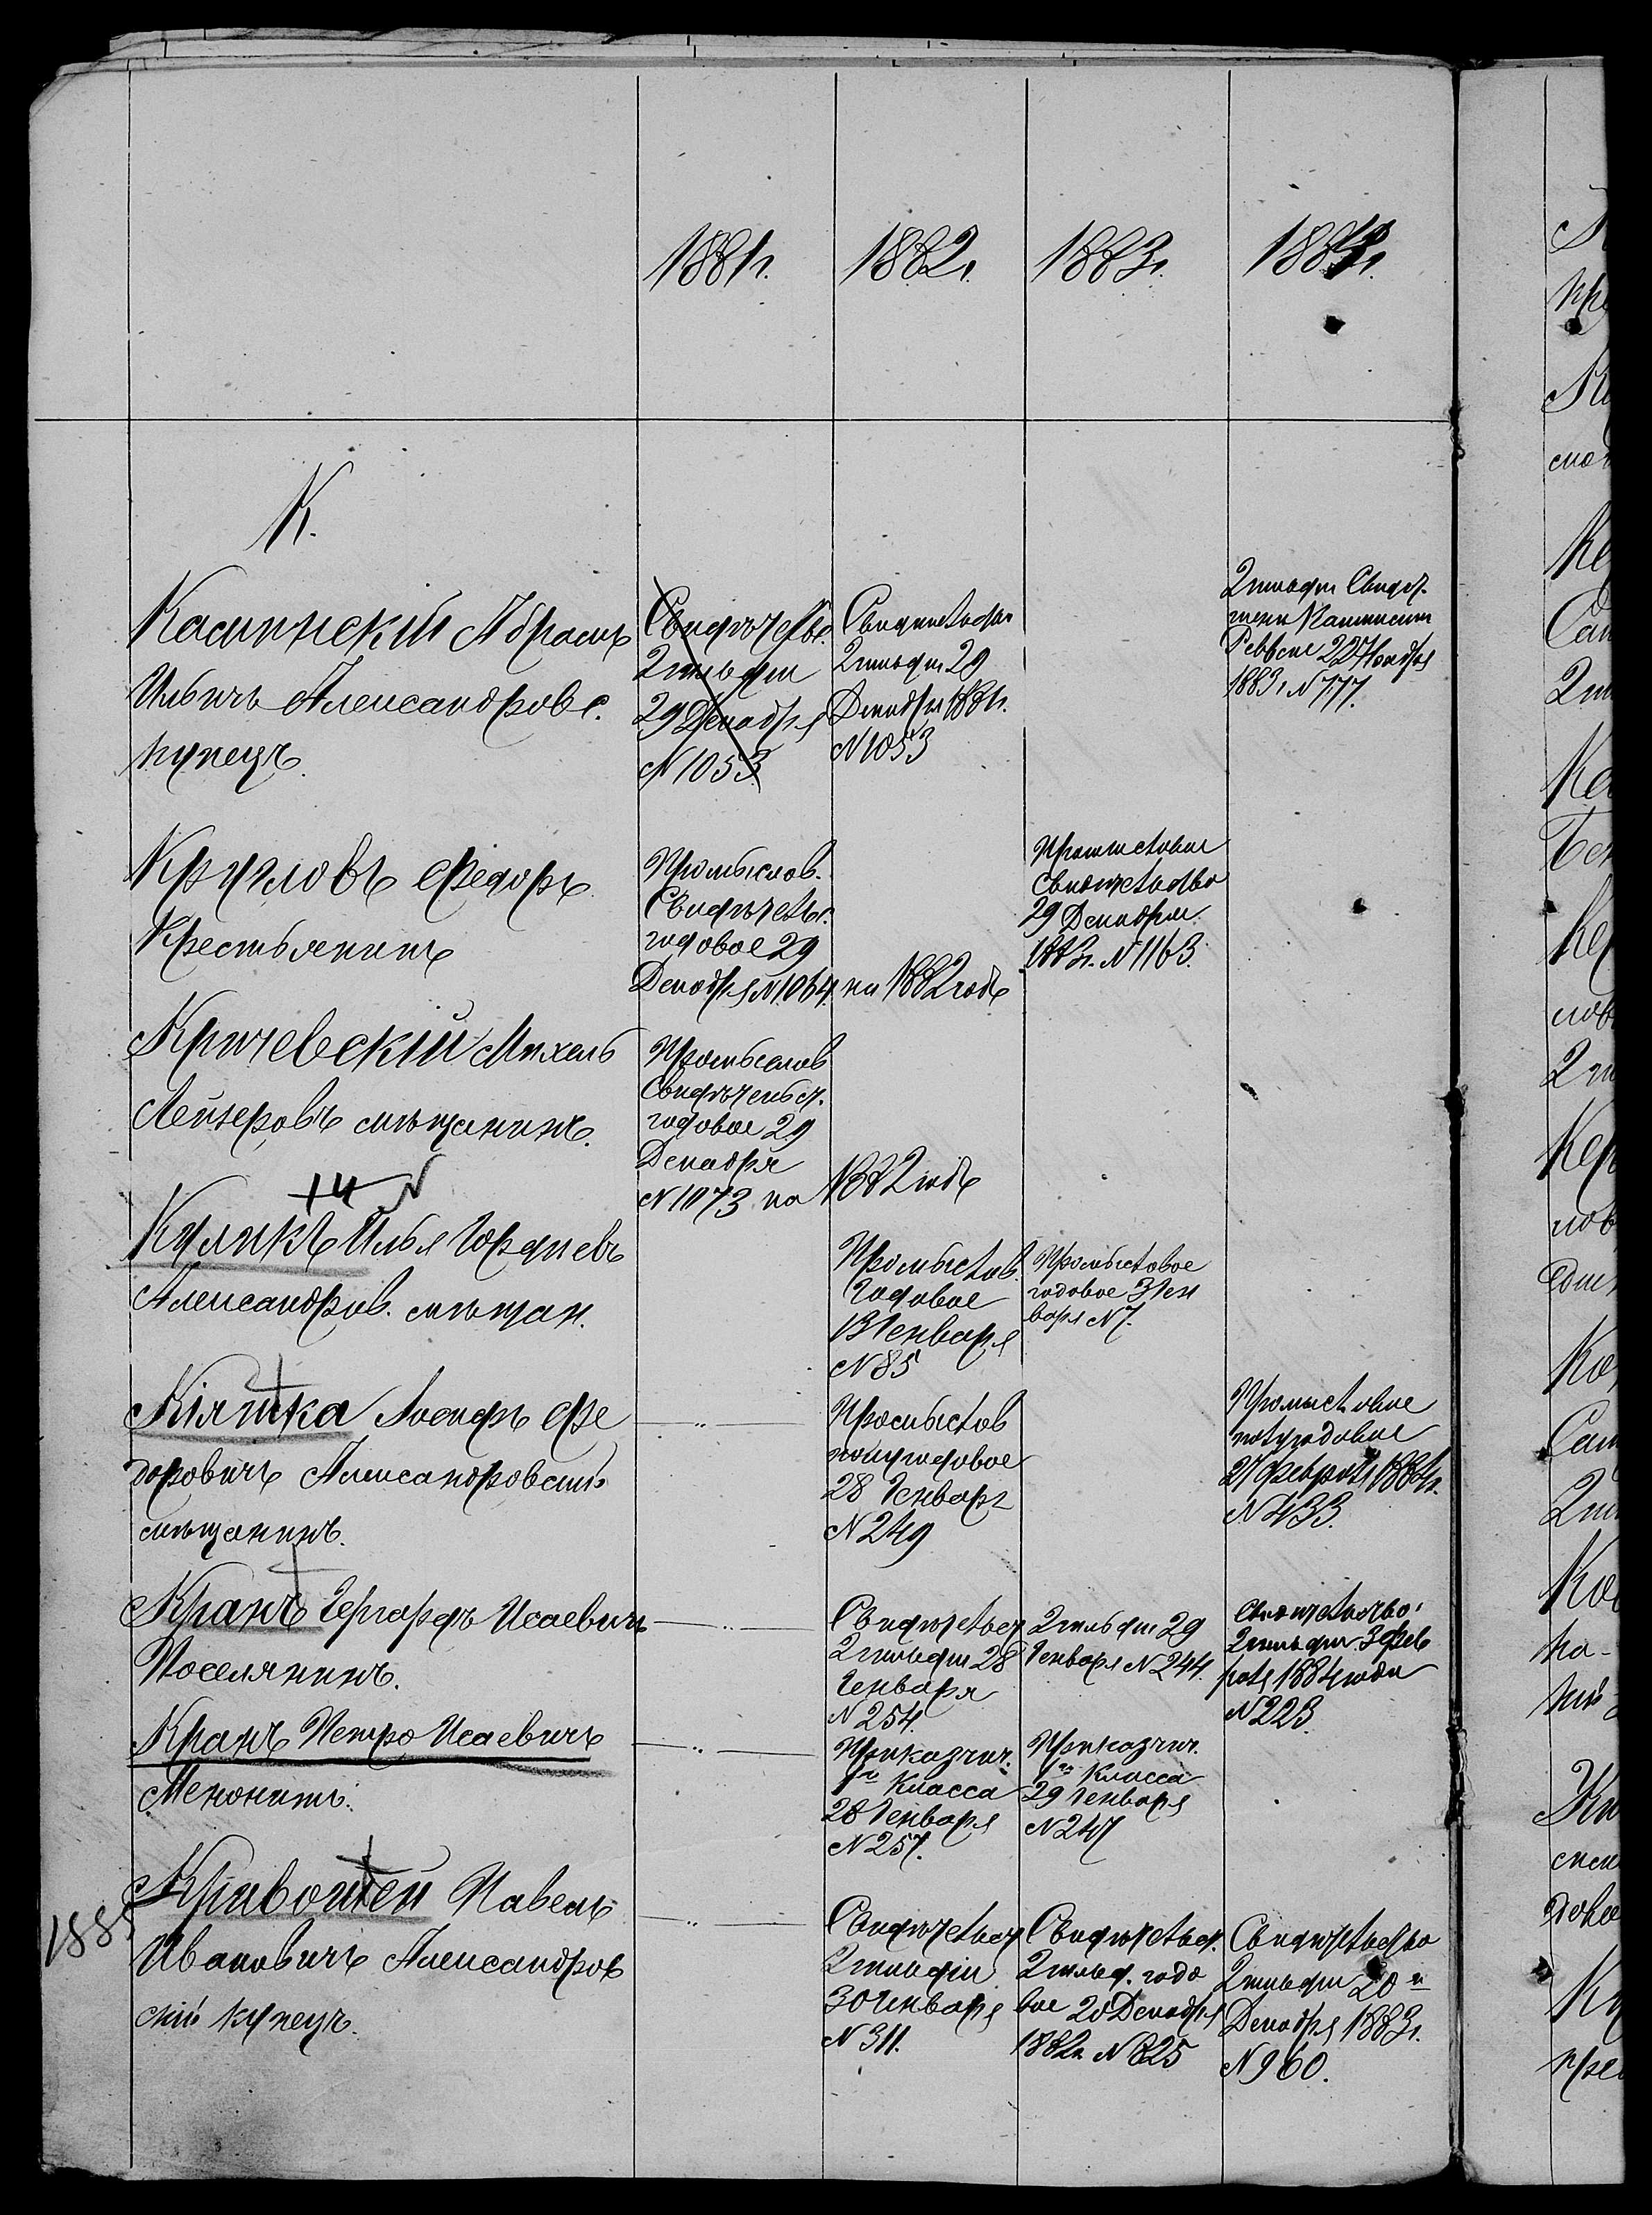 1881г. 1882г. 1883г. 1884г.
К.
Кашинскій Абрамъ
Ильичъ Александровс.
купецъ.
Свидѣтельс.
2 гильдіи
29 Декабря
N 1053
Свидѣтельство
2 гильдіи 29
Декабря 1881г.
N 1053
2 гильдіи Свидѣт.
22 Ноября
1883г. N 777.
Кругловъ Федоръ
Крестьянинъ
Промыслов.
Свидѣтельс.
годовое 29
Декабря N 1064. на 1882 годъ
Промысловое
Свидѣтельство
29 Декабря
1883г. N 1163.
Кричевскій Михель
Лейзеровъ мѣщанинъ.
Промыслов
Свидѣтельст.
годовое 29
Декабря
N 1073 на 1882 годъ
Куликъ Илья Гордѣевъ
Александров. мѣщан.
Промыслов.
годовое
13 Генваря
N 85
Промысловое
годовое 3 Ген
варя N 7.
Кіяшка Іосифъ Фе
доровичъ Александровскій
мѣщанинъ.
Промыслов
полугодовое
28 Генваря
N 249
Промысловое
полугодовое
27 февраля 1884г.
N 433.
Кранъ Гергардъ Исаевичъ
Поселянинъ.
Свидѣтельст
2 гильдіи 28
Генваря
N 254.
2 гильдіи 29
Генваря N 244.
Свидѣтельство
2 гильдіи 3 Фев
раля 1884 года
N 223.
Кранъ Петръ Исаевичъ
Менонитъ.
Приказчич.
1го Класса
28 Генваря
N 257.
Приказчич.
1го Класса
29 Генваря
N 247
1885
Кривошей Павелъ
Ивановичъ Александров
скій купецъ.
Свидѣтельст
2 гильдіи
30 Генваря
N 311.
Свидѣтельст.
2 гильд. годо
вое 20 Декабря
1882г. N 825
Свидѣтельство
2 гильдіи 20 го
Декабря 1883г.
N 960.